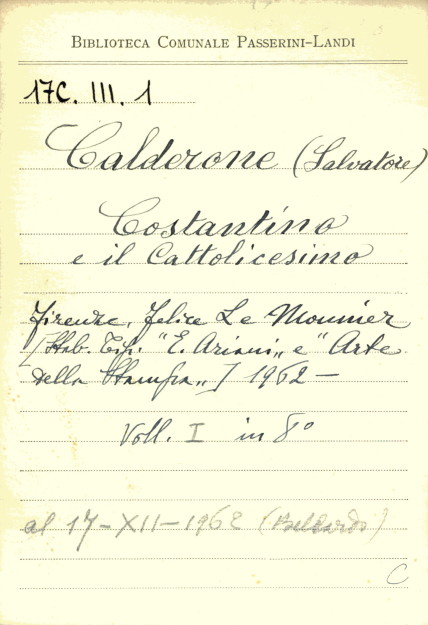 BIBLIOTECA COMUNALE PASSERINI-LANDI
17C. III. 1
Calderone (Salvatore)
Costantino
e il Cattolicesimo
Firenze, Felice Le Monnier
[Stab. Tip. "E. Ariani„ e "Arte
della Stampa„] 1962 —
Voll. I in 8°
al 17-XII-1962
C